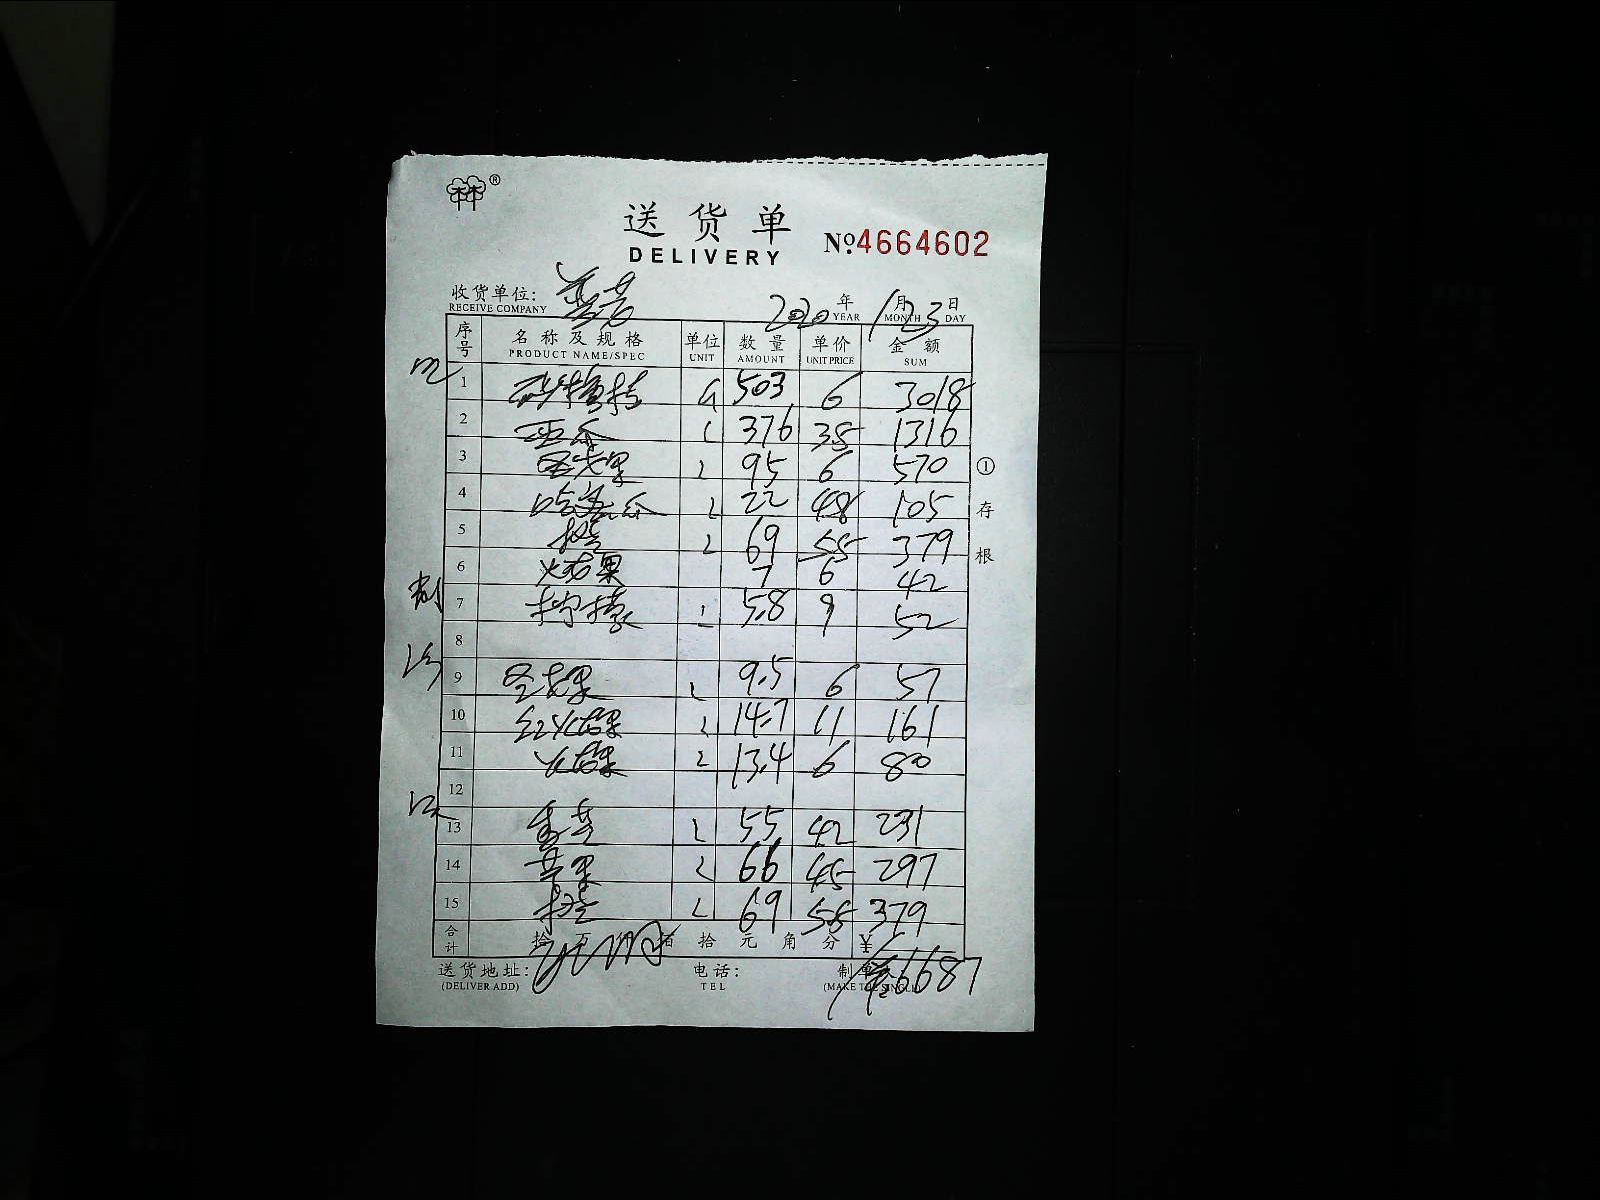 林®
送货单
№4664602
DELIVERY
收货单位:
RECEIVE COMPANY
2020 年 YEAR 1 月 MONTH 23 日 DAY
序号 名称及规格 PRODUCT NAME/SPEC 单位 UNIT 数量 AMOUNT 单价 UNIT PRICE 金额 SUM
1 砂糖桔 503 6 3018
2 376 35 1316
3 圣女果 95 6 570
4 哈密瓜 22 48 105
5 橙 69 55 379
6 火龙果 7 6 42
7 柠檬 5.8 9 52
8
9 圣女果 9.5 6 57
10 红火龙果 14.7 11 161
11 火龙果 13.4 6 80
12
13 香芒 55 42 231
14 苹果 66 45 297
15 橙 69 55 379
合计 拾 万 仟 佰 拾 元 角 分 ¥ 6687
① 存根
送货地址: (DELIVER ADD) 电话: TEL 制单 (MAKE THE SINGLE)